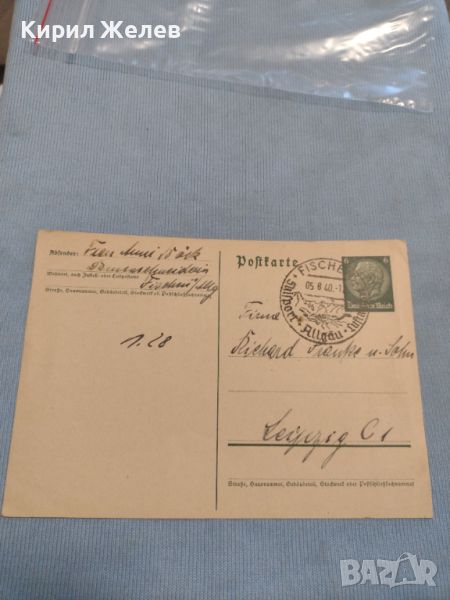 Кирил Желев
Absender:
Wohnort, auch Zustell- oder Leitpostamt
Straße, Hausnummer, Gebäudeteil, Stockwerk od. Postschließfachnummer
1.28
Postkarte
FISCHE
05.8.40.-1
Skisport · Allgäu · Lufta
6 6
Deutsches Reich
Firma
Richard Franke u. Sohn
Leipzig C1
Straße, Hausnummer, Gebäudeteil, Stockwerk oder Postschließfachnummer
BAZAR